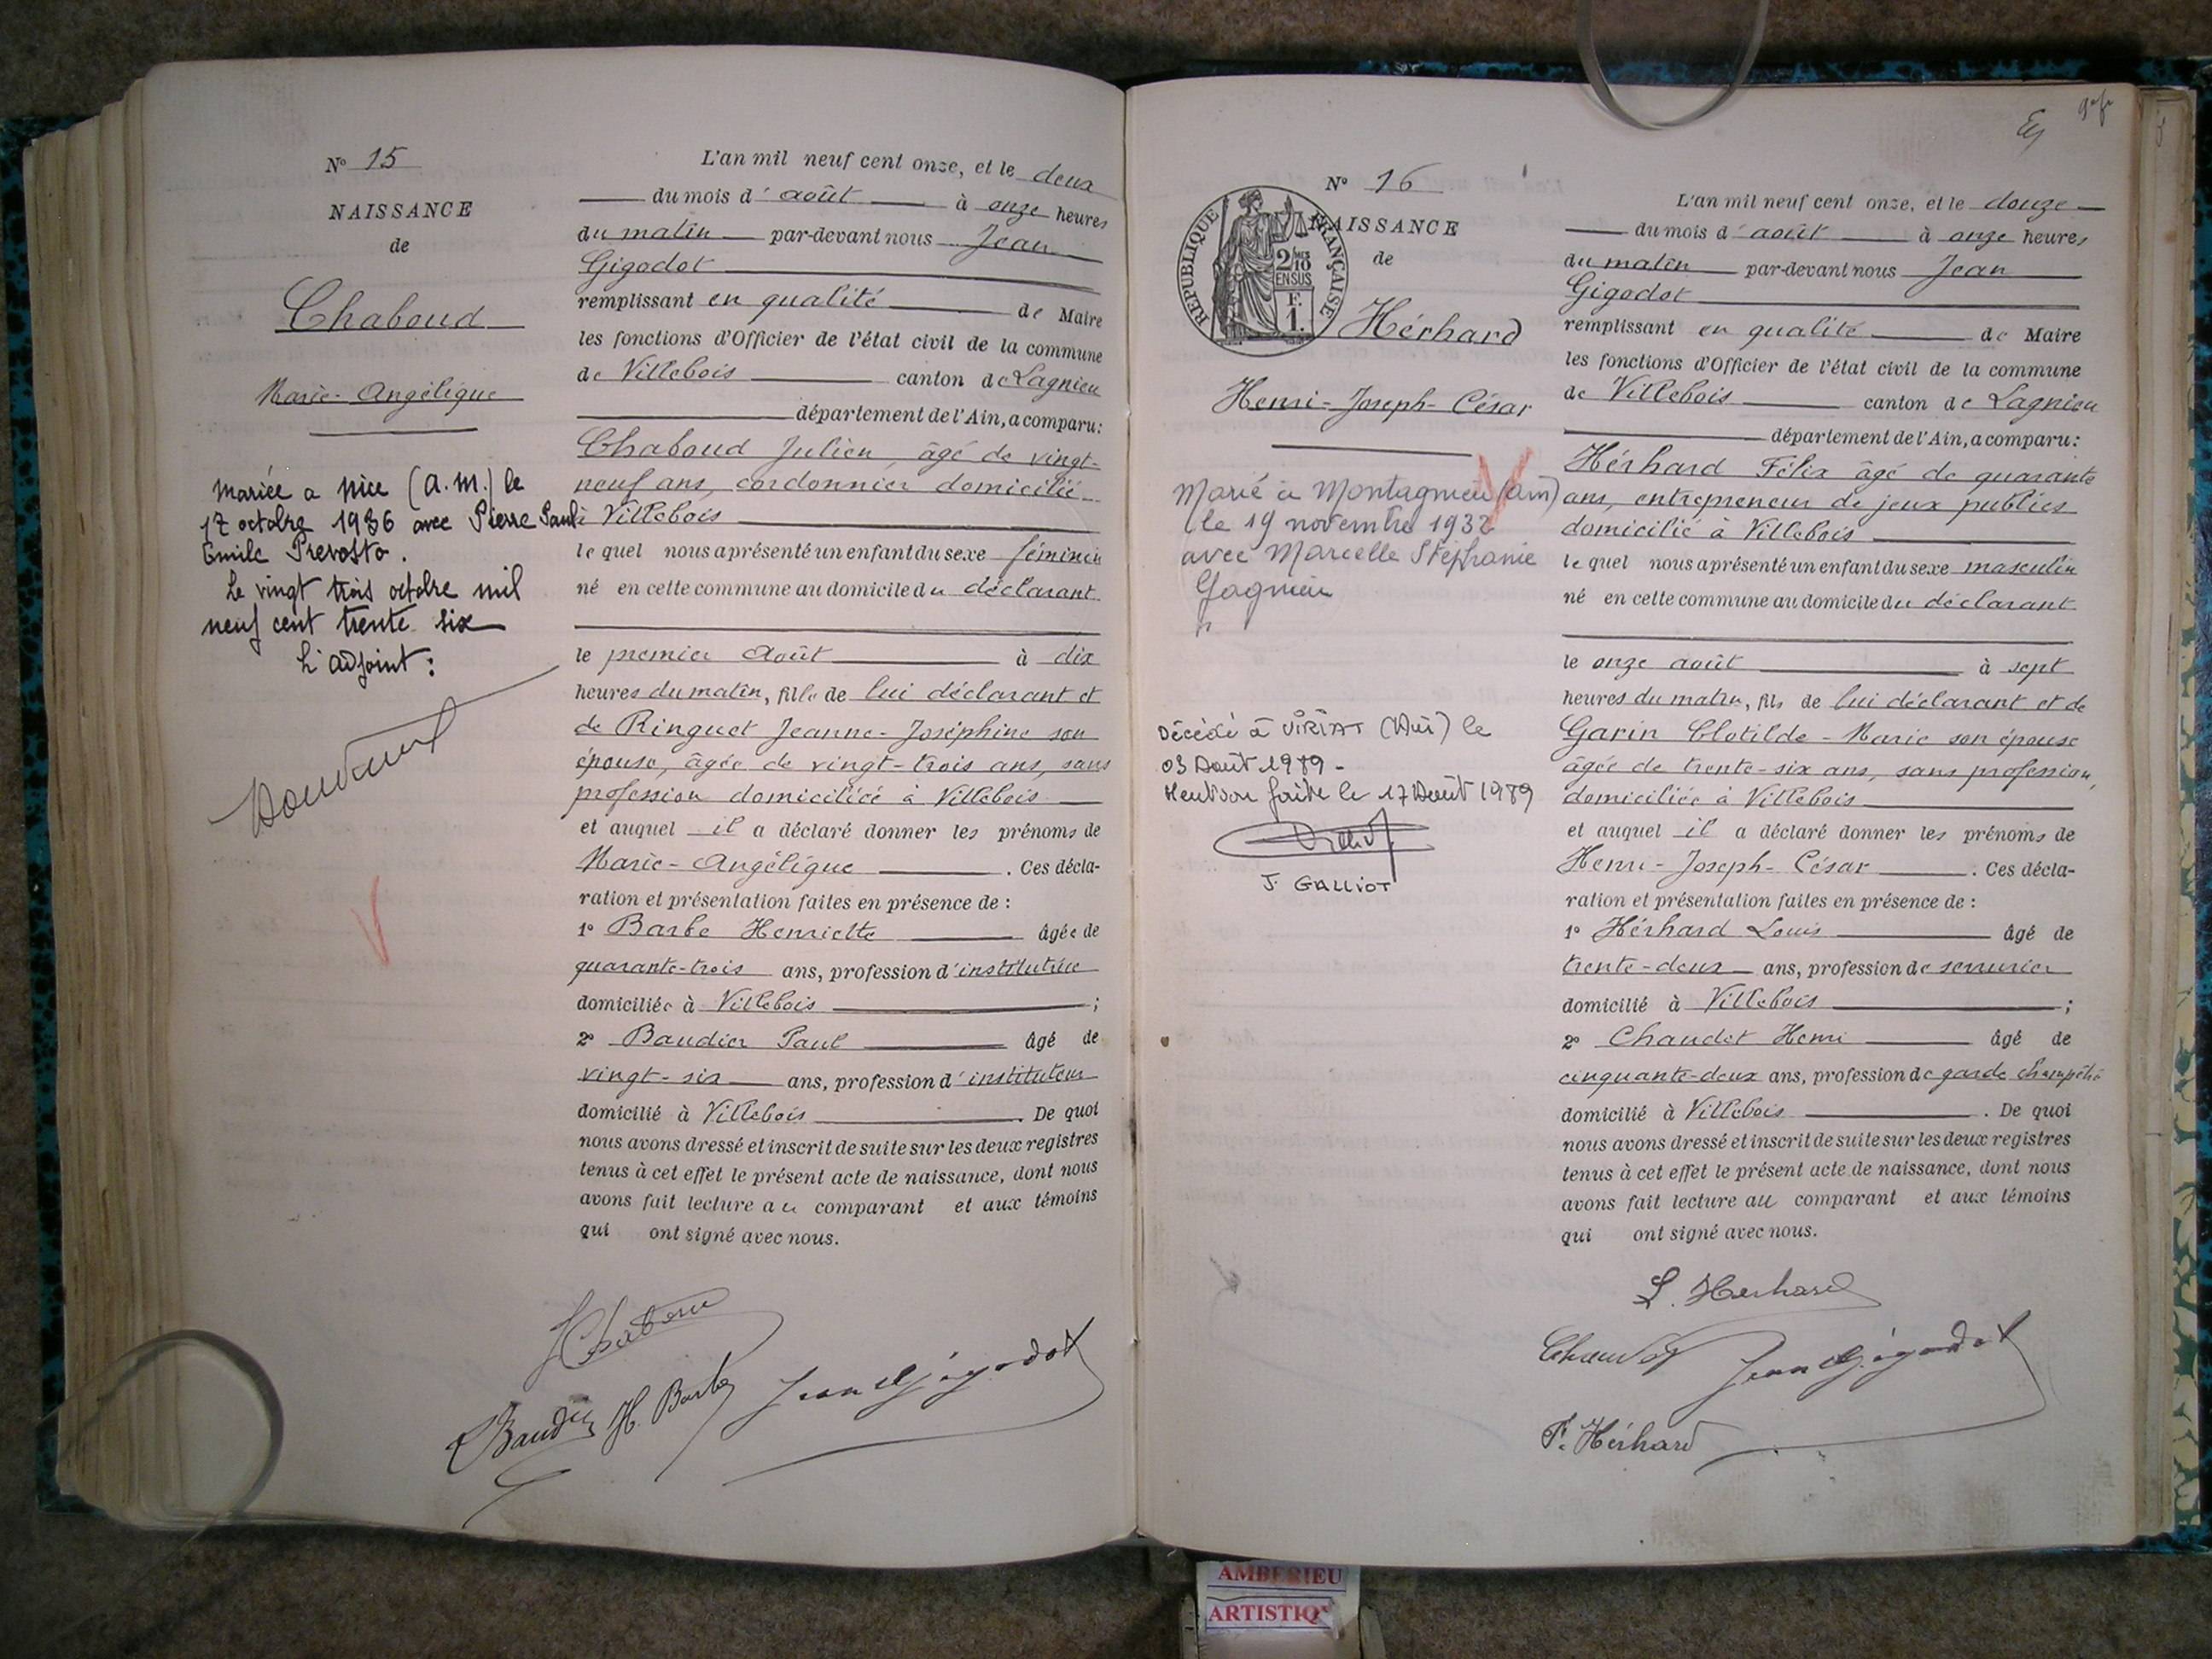 N° 15
NAISSANCE
de
Chaboud
Marie-Angélique
mariée a Nice (A.M.) le
17 octobre 1936 avec Pierre Paul
Emile Prevosto.
Le vingt trois octobre mil
neuf cent trente six
L'adjoint :
L'an mil neuf cent onze, et le deux
du mois d'août à onze heures
du matin par-devant nous Jean
Gigodot
remplissant en qualité de Maire
les fonctions d'Officier de l'état civil de la commune
de Villebois canton de Lagnieu
département de l'Ain, a comparu :
Chaboud Julien, âgé de vingt-
neuf ans, cordonnier domicilié
à Villebois
le quel nous a présenté un enfant du sexe féminin
né en cette commune au domicile du déclarant
le premier Août à dix
heures du matin, fille de lui déclarant et
de Ringuet Jeanne-Joséphine son
épouse, âgée de vingt-trois ans, sans
profession domiciliée à Villebois
et auquel il a déclaré donner les prénoms de
Marie-Angélique. Ces décla-
ration et présentation faites en présence de :
1° Barbe Henriette âgée de
quarante-trois ans, profession d'institutrice
domiciliée à Villebois ;
2° Baudier Paul âgé de
vingt-six ans, profession d'instituteur
domicilié à Villebois. De quoi
nous avons dressé et inscrit de suite sur les deux registres
tenus à cet effet le présent acte de naissance, dont nous
avons fait lecture au comparant et aux témoins
qui ont signé avec nous.
H. Barbe Jean Gigodot
N° 16
NAISSANCE
de
REPUBLIQUE FRANÇAISE
2/10 EN SUS
F.
1.
Hérhard
Henri-Joseph-César
Marié à Montagnieu (Ain)
le 19 novembre 1932
avec Marcelle Stéphanie
Gagnieu
Décédé à VIRIAT (Ain) le
03 Août 1989 -
Mention faite le 17 Août 1989
J. GALLIOT
L'an mil neuf cent onze, et le douze
du mois d'août à onze heures
du matin par-devant nous Jean
Gigodot
remplissant en qualité de Maire
les fonctions d'Officier de l'état civil de la commune
de Villebois canton de Lagnieu
département de l'Ain, a comparu :
Hérhard Félix âgé de quarante
ans, entrepreneur de jeux publics
domicilié à Villebois
le quel nous a présenté un enfant du sexe masculin
né en cette commune au domicile du déclarant
le onze août à sept
heures du matin, fils de lui déclarant et de
Garin Clotilde-Marie son épouse
âgée de trente-six ans, sans profession,
domiciliée à Villebois
et auquel il a déclaré donner les prénoms de
Henri-Joseph-César. Ces décla-
ration et présentation faites en présence de :
1° Hérhard Louis âgé de
trente-deux ans, profession de serrurier
domicilié à Villebois ;
2° Chaudet Henri âgé de
cinquante-deux ans, profession de garde champêtre
domicilié à Villebois. De quoi
nous avons dressé et inscrit de suite sur les deux registres
tenus à cet effet le présent acte de naissance, dont nous
avons fait lecture au comparant et aux témoins
qui ont signé avec nous.
L. Herhard
Jean Gigodot
F. Hérhard
AMBERIEU
ARTISTIQ